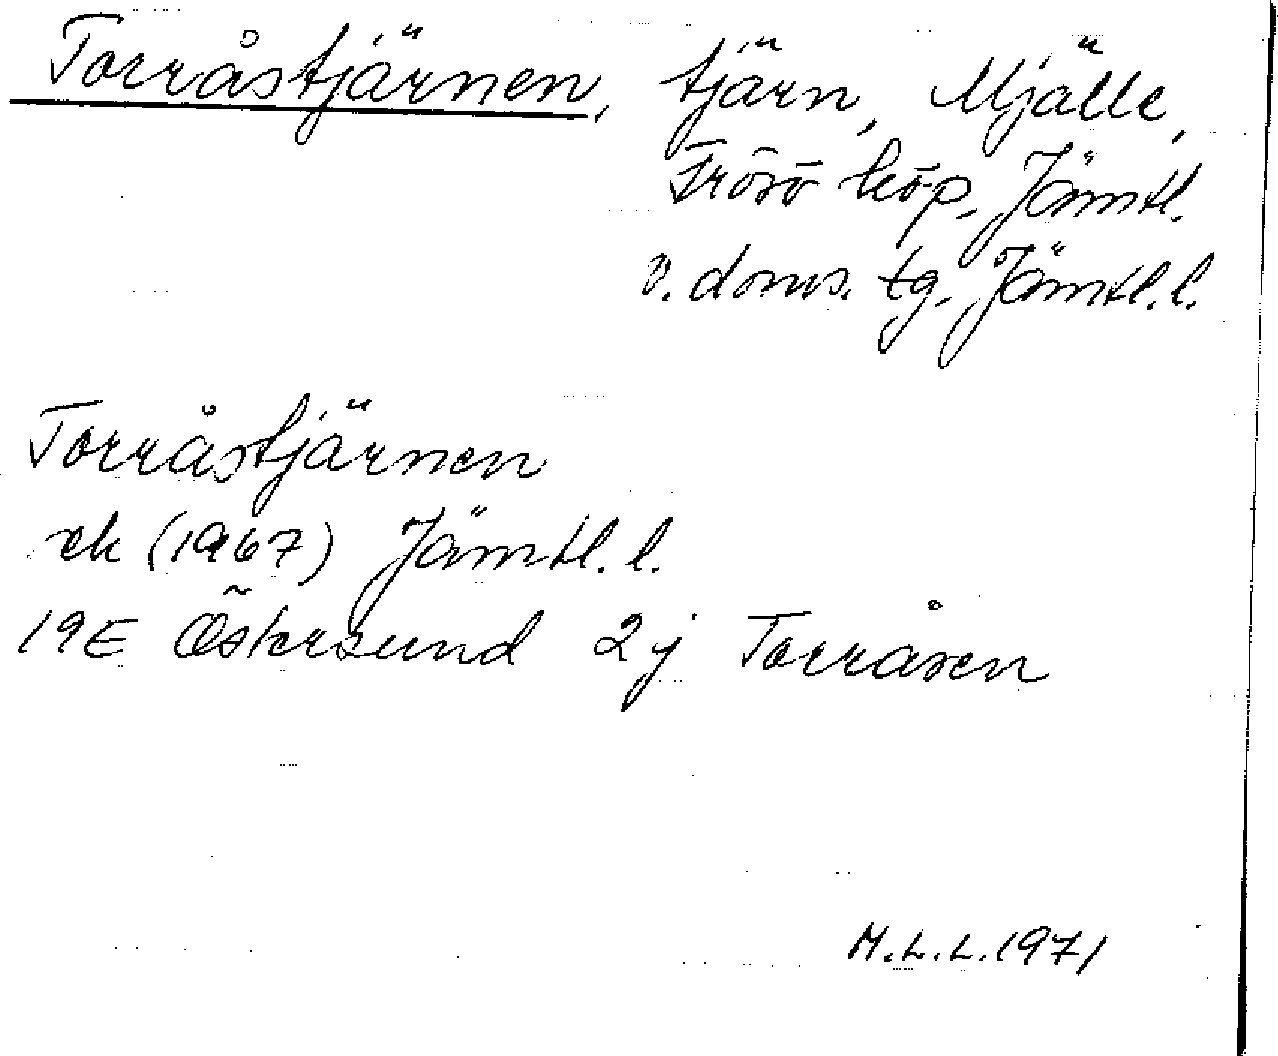 Torråstjärnen, tjärn, Mjälle,
Frösö köp, Jämtl.
v. doms. tg, Jämtl. l.
Torråstjärnen
ek (1967) Jämtl. l.
19E Östersund 2j Torråsen
M.L.L. 1971